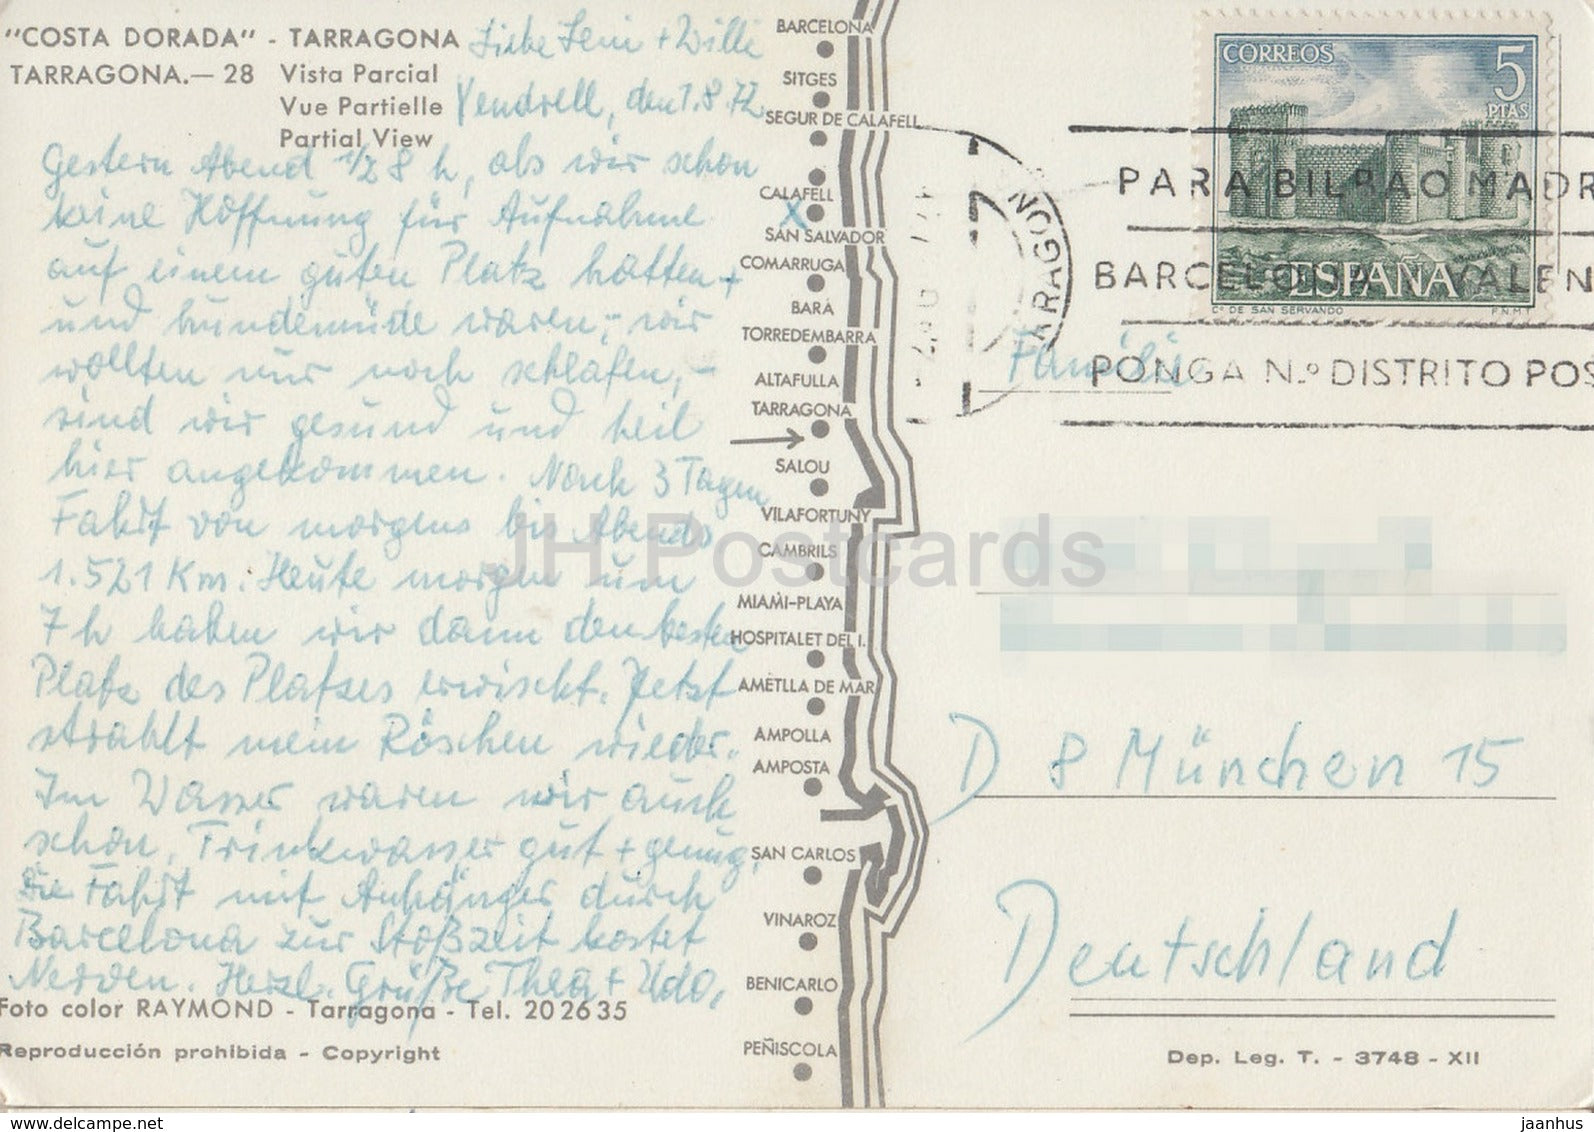 "COSTA DORADA" - TARRAGONA
TARRAGONA.— 28 Vista Parcial
Vue Partielle
Partial View
Liebe Leni + Willi
Vendrell, den 1.8.72
Gestern Abend 1/2 8 h, als wir schon
keine Hoffnung für Aufnahme
auf einem guten Platz hatten +
und hundemüde waren, - wir
wollten nur noch schlafen, -
sind wir gesund und heil
hier angekommen. Nach 3 Tagen
Fahrt von morgens bis Abends
1.521 Km. Heute morgen um
7 h haben wir dann den besten
Platz des Platzes erwischt. Jetzt
strahlt mein Röschen wieder.
Im Wasser waren wir auch
schon. Trinkwasser gut + genug,
Die Fahrt mit Anhänger durch
Barcelona zur Stoßzeit kostet
Nerven. Herzl. Grüße Thea + Udo,
Foto color RAYMOND - Tarragona - Tel. 20 26 35
Reproducción prohibida - Copyright
BARCELONA
SITGES
SEGUR DE CALAFELL
CALAFELL
X
SAN SALVADOR
COMARRUGA
BARÁ
TORREDEMBARRA
ALTAFULLA
TARRAGONA
SALOU
VILAFORTUNY
CAMBRILS
MIAMI-PLAYA
HOSPITALET DEL I.
AMETLLA DE MAR
AMPOLLA
AMPOSTA
SAN CARLOS
VINAROZ
BENICARLO
PEÑISCOLA
CORREOS 5
PTAS
ESPAÑA
Cº DE SAN SERVANDO F.N.M.T.
TARRAGONA
PARA BILBAO MADR
BARCELONA VALEN
PONGA N.º DISTRITO POS
Familie
D 8 München 15
Deutschland
Dep. Leg. T. - 3748 - XII
JH Postcards
www.delcampe.net
jaanhus